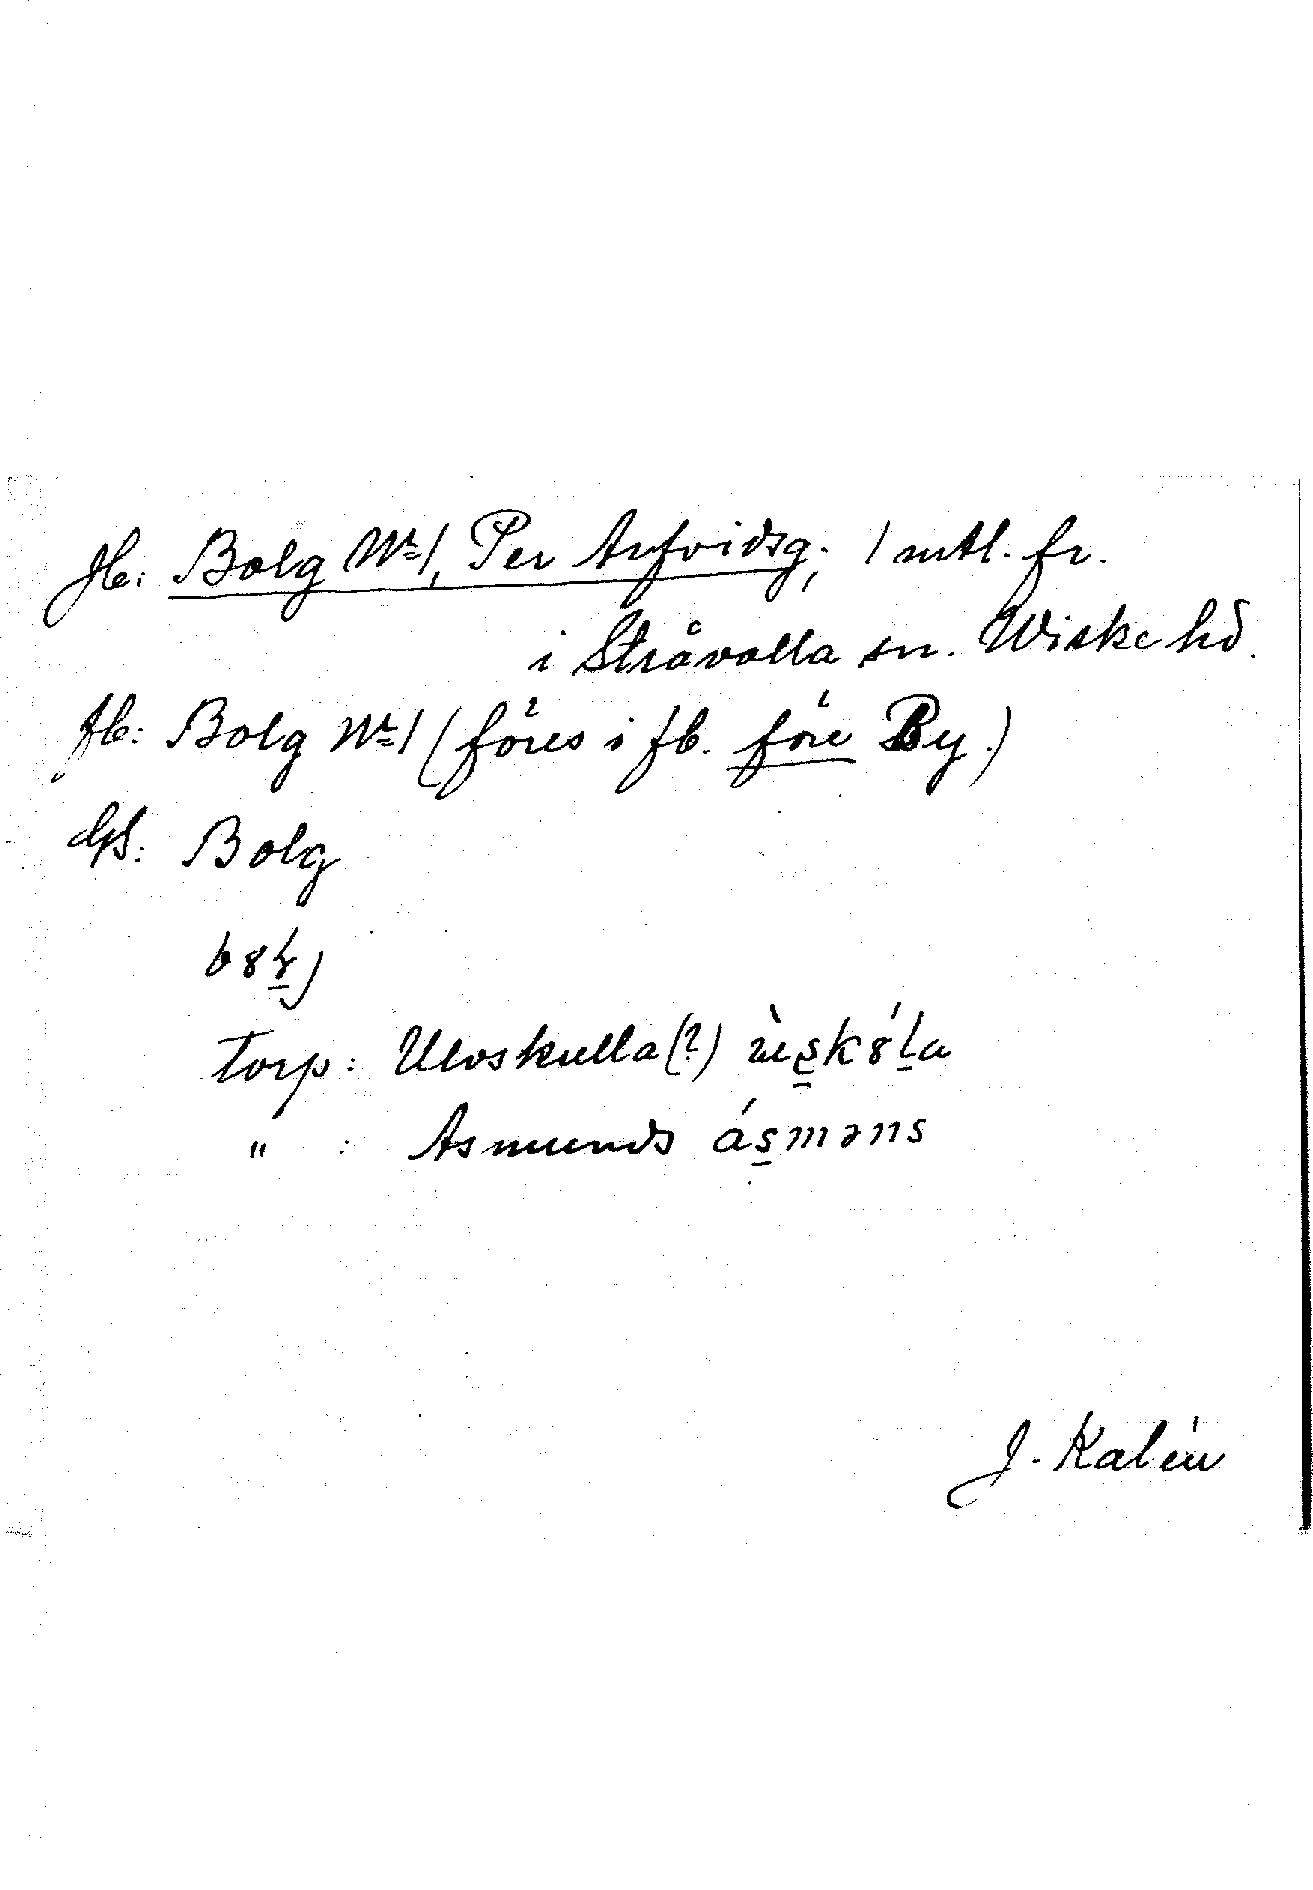 Jb: Bolg Nr 1, Per Arfvidsg; 1 mtl. fr.
i Stråvalla sn. Wiske hd.
fb: Bolg Nr 1 (föres i fb. före By.)
GS: Bolg
Torp: Ulvskulla (?)
" : Asmunds ásməns
J. Kalén